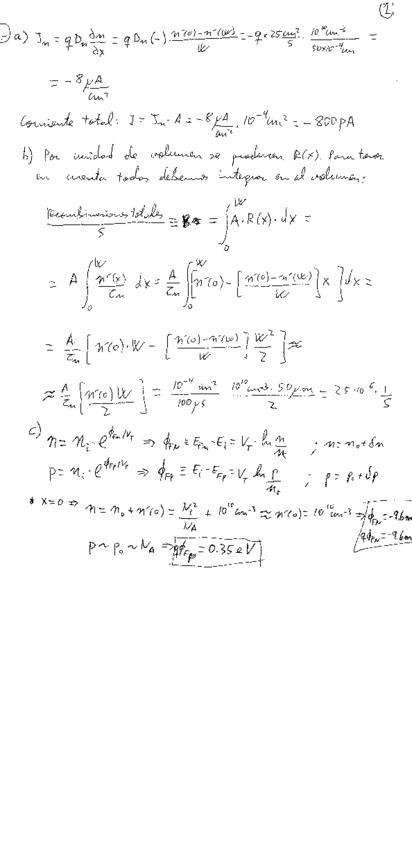 1.
a) Jn = q Dn ∂n/∂x = q Dn (-) · (n'(0) - n'(W))/W = -q · 25 cm²/s · 10^10 cm^-3 / 50x10^-4 cm =
= -8 μA/cm²
Corriente total: I = Jn · A = -8 μA/cm² · 10^-4 cm² = -800 pA
b) Por unidad de volumen se producen R(x). Para tener
en cuenta todos debemos integrar en el volumen:
Recombinaciones totales / s = = ∫_0^W A · R(x) · dx =
= A ∫_0^W n'(x)/τn dx = A/τn ∫_0^W [n'(0) - [(n'(0) - n'(W))/W] x ] dx =
= A/τn [ n'(0) · W - [(n'(0) - n'(W))/W] W²/2 ] ≈
≈ A/τn [ n'(0) W / 2 ] = 10^-4 cm² / 100 μs · 10^10 cm^-3 · 50 μm / 2 = 25 · 10^6 · 1/s
c) n = ni · e^(ϕFn/VT) ⇒ ϕFN ≡ EFn - Ei = VT · ln n/ni ; n = n0 + δn
p = ni · e^(ϕFp/VT) ⇒ ϕFp ≡ Ei - EFp = VT ln p/ni ; p = p0 + δp
* x=0 ⇒ n = n0 + n'(0) = Ni²/NA + 10^10 cm^-3 ≈ n'(0) = 10^10 cm^-3 ⇒ ϕFN = -9.6m
qϕFN = -9.6m
p ~ p0 ~ NA ⇒ qϕFp = 0.35 eV